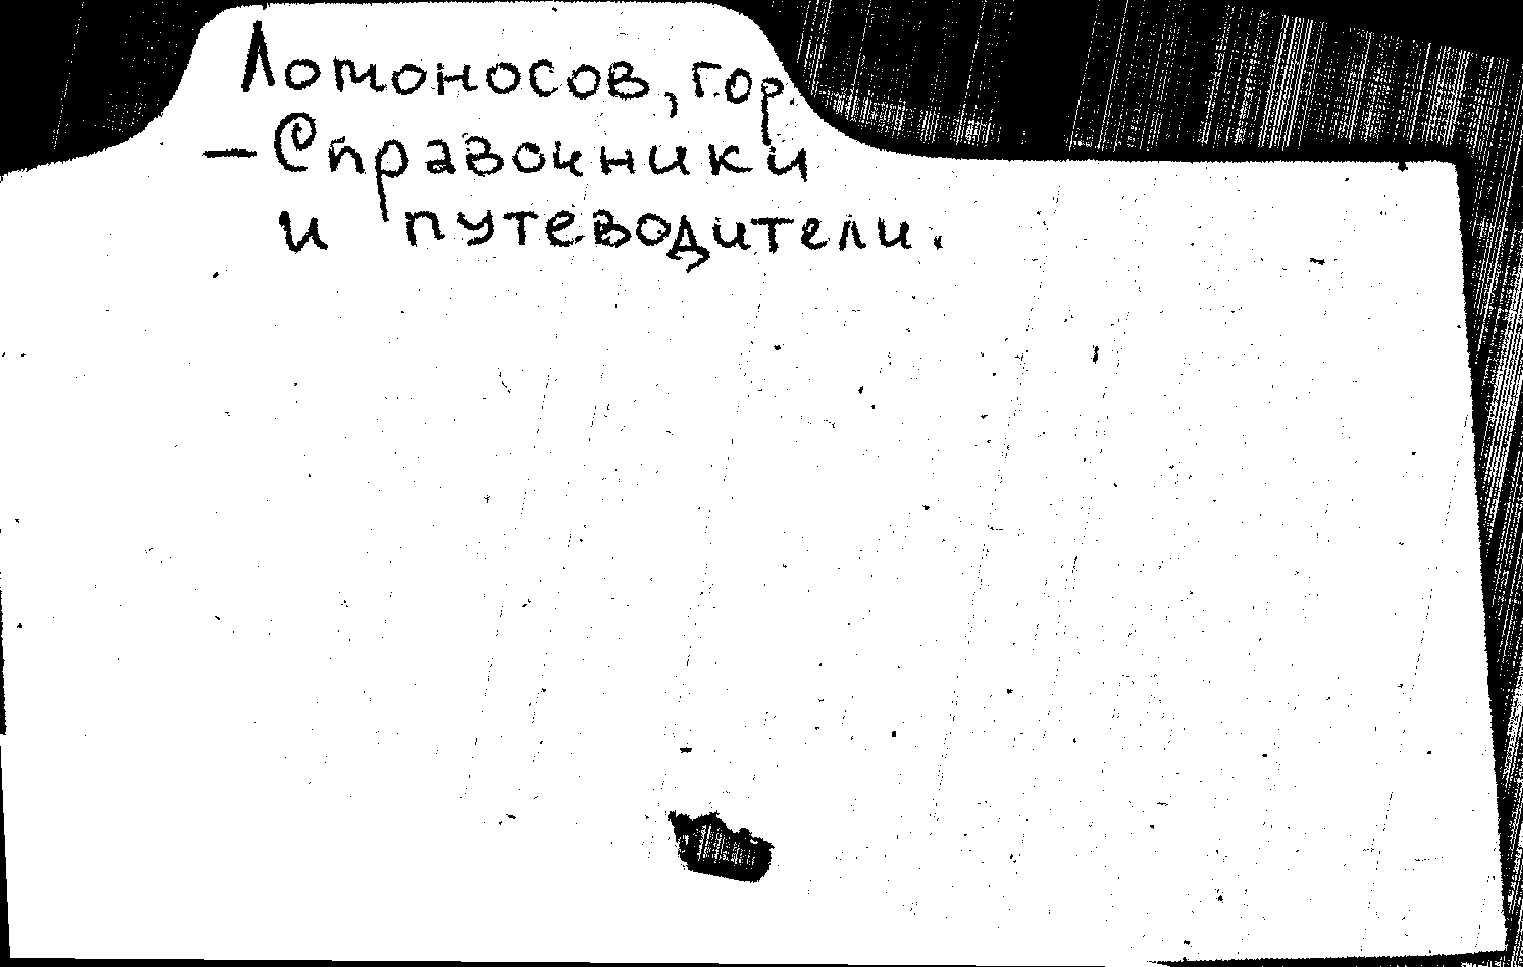 Ломоносов, гор.
– Справочники
и путеводители.